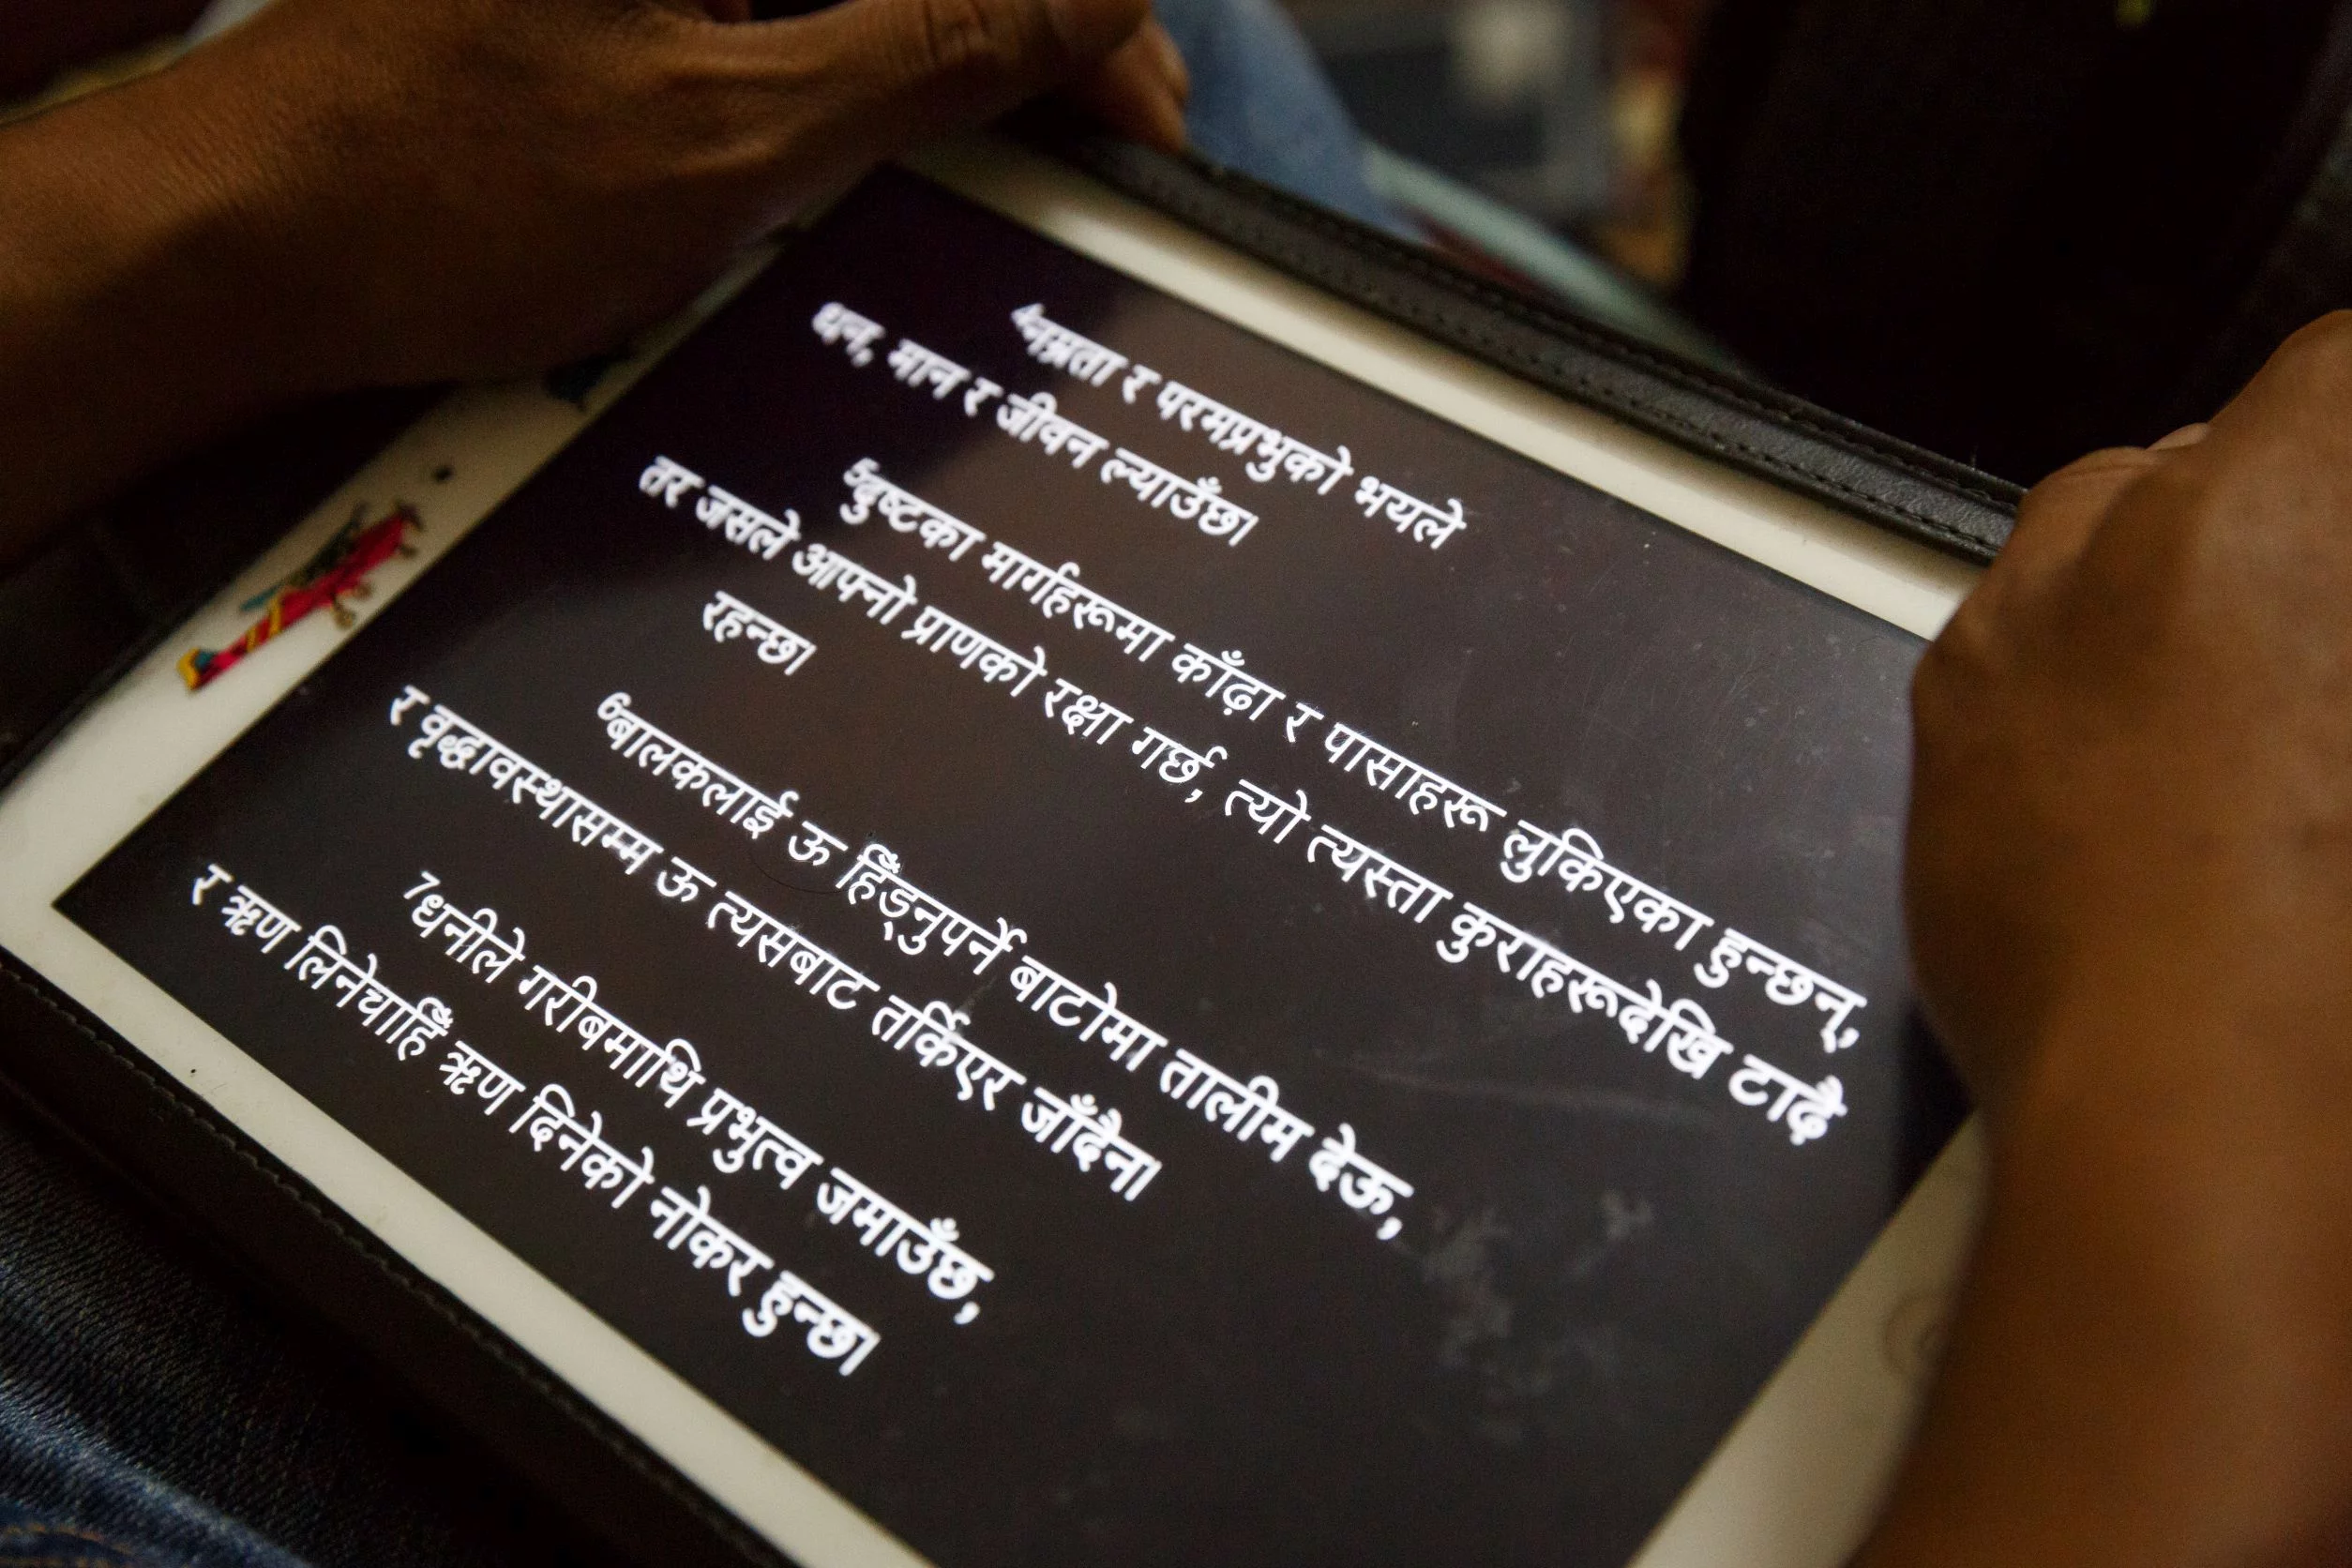 4नम्रता र परमप्रभुको भयले
धन, मान र जीवन ल्याउँछ।
5दुष्टका मार्गहरूमा काँढ़ा र पासाहरू लुकिएका हुन्छन्,
तर जसले आफ्नो प्राणको रक्षा गर्छ, त्यो त्यस्ता कुराहरूदेखि टाढ़ै
रहन्छ।
6बालकलाई ऊ हिँड्नुपर्ने बाटोमा तालीम देऊ,
र वृद्धावस्थासम्म ऊ त्यसबाट तर्किएर जाँदैन।
7धनीले गरीबमाथि प्रभुत्व जमाउँछ,
र ऋण लिनेचाहिँ ऋण दिनेको नोकर हुन्छ।